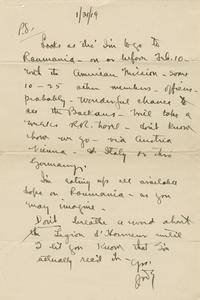 1/30/19
P.S.
Looks as tho' I'm to go to
Roumania - on or before Feb. 10 -
with the American Mission - some
10 - 25 other members - officers
probably - Wonderful chance to
see the Balkans. Will take a
weeks R.R. travel - don't know
how we go - via Austria
Vienna - or Italy or thro
Germany.
I'm eating up all available
dope on Roumania - as you
may imagine.
Don't breathe a word about
the Legion d'Honneur until
I let you know that I've
actually rec'd it -